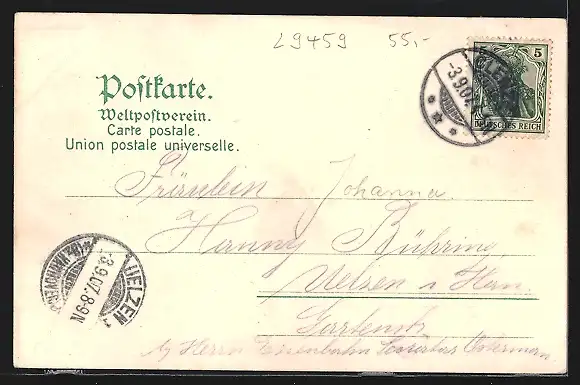 L9459 55,-
Postkarte.
Weltpostverein.
Carte postale.
Union postale universelle.
5 5
DEUTSCHES REICH
-3.9.07.
Fräulein Johanna
Hanny Bühring
Uelzen i. Hann.
Gartenstr
UELZEN 1
-3.9.07.8-9N.